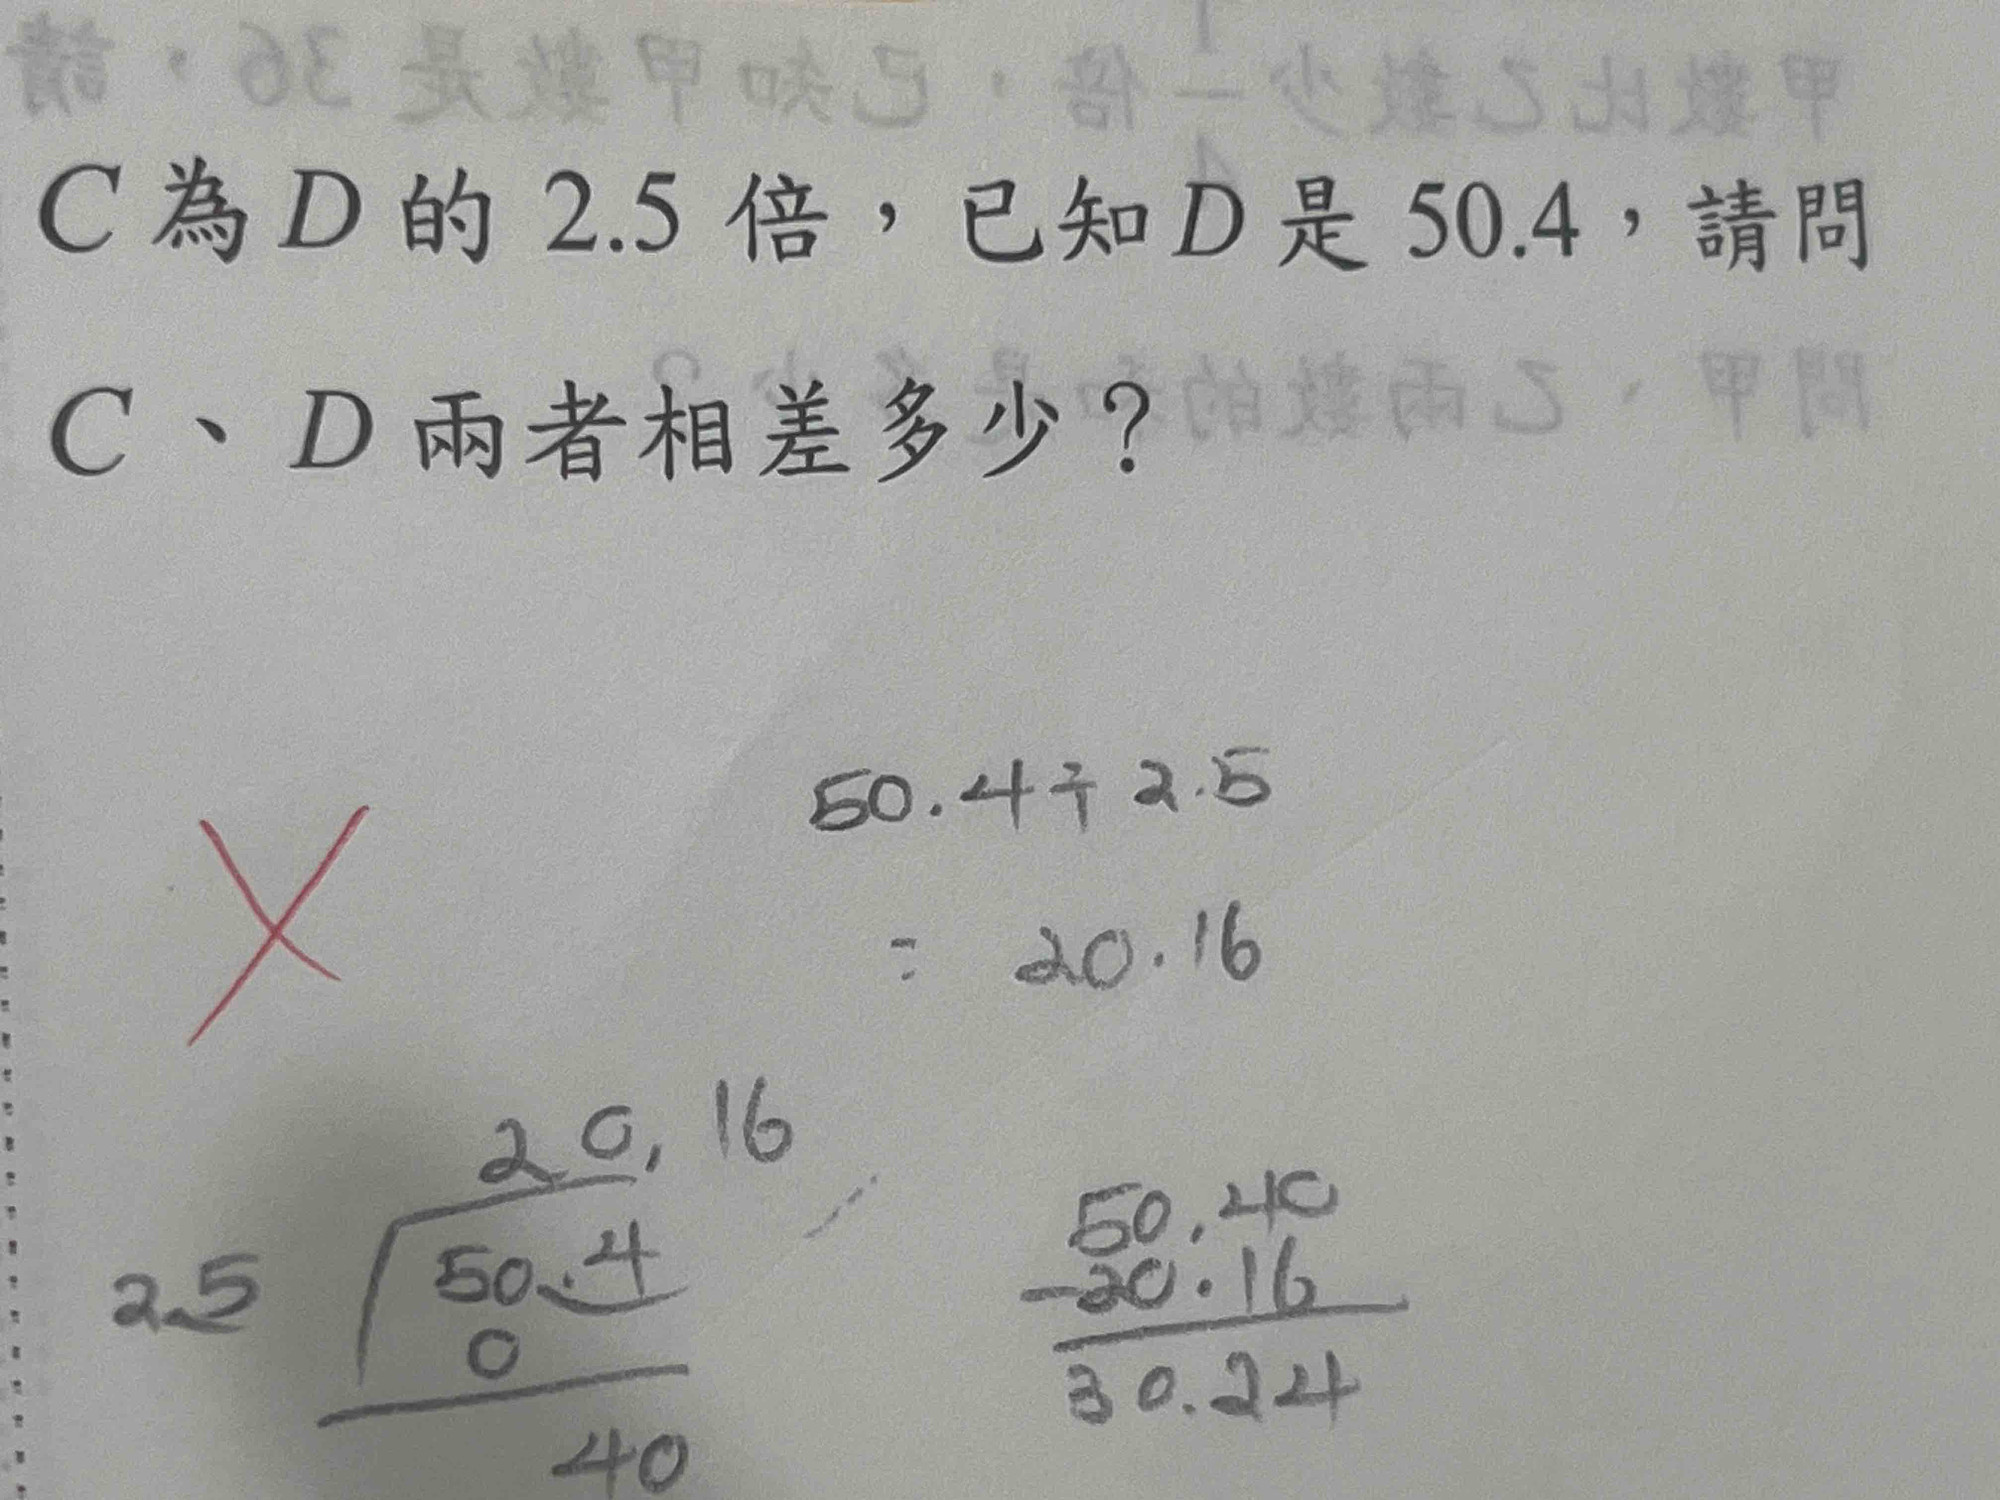 C 為 D 的 2.5 倍，已知 D 是 50.4，請問
C、D 兩者相差多少？
50.4÷2.5
= 20.16
20.16
2.5 50.4
0
40
50.40
-20.16
30.24